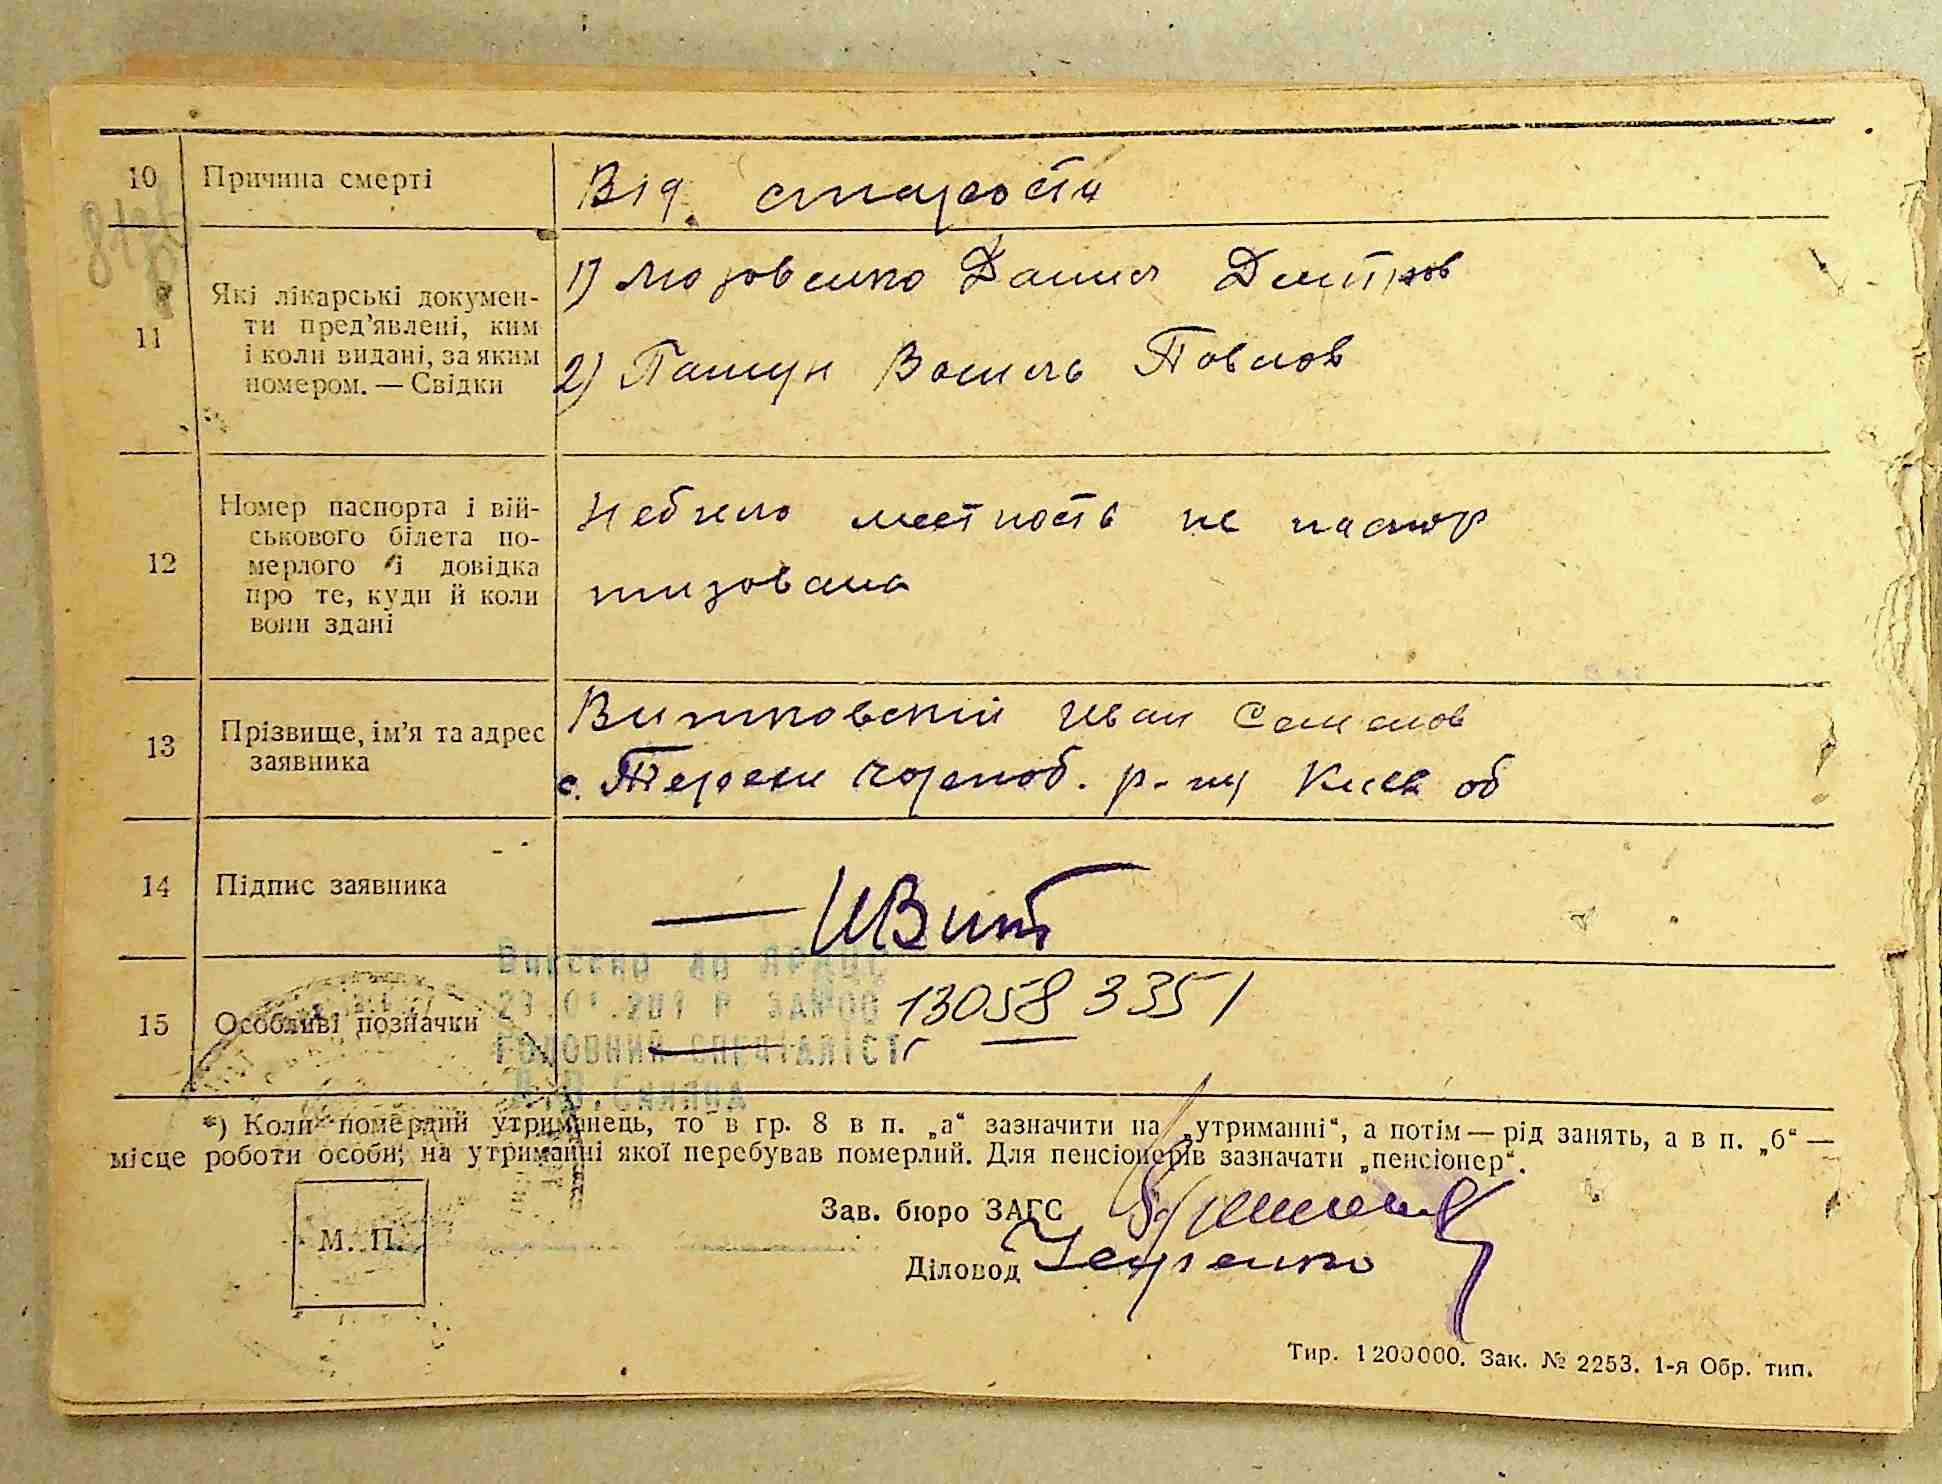 10 Причина смерті Від старости
11 Які лікарські докумен-
ти пред'явлені, ким
і коли видані, за яким
номером. — Свідки
1) Данил Дмитров
2) Пашун Василь Павлов
12 Номер паспорта і вій-
ськового білета по-
мерлого і довідка
про те, куди й коли
вони здані
Небило местность не паспор
тизована
13 Прізвище, ім'я та адрес
заявника
Витковский Иван Семенов
с. Терехи Чорноб. р-ну Киев об
14 Підпис заявника
— ИВит
15 Особливі позначки
Внесено до ДРАЦС
130583351
ГОЛОВНИЙ СПЕЦІАЛІСТ
*) Коли померлий утриманець, то в гр. 8 в п. „а“ зазначити на „утриманні“, а потім — рід занять, а в п. „б“ —
місце роботи особи, на утриманні якої перебував померлий. Для пенсіонерів зазначати „пенсіонер“.
Зав. бюро ЗАГС
М. П.
Діловод
Тир. 1200000. Зак. № 2253. 1-я Обр. тип.